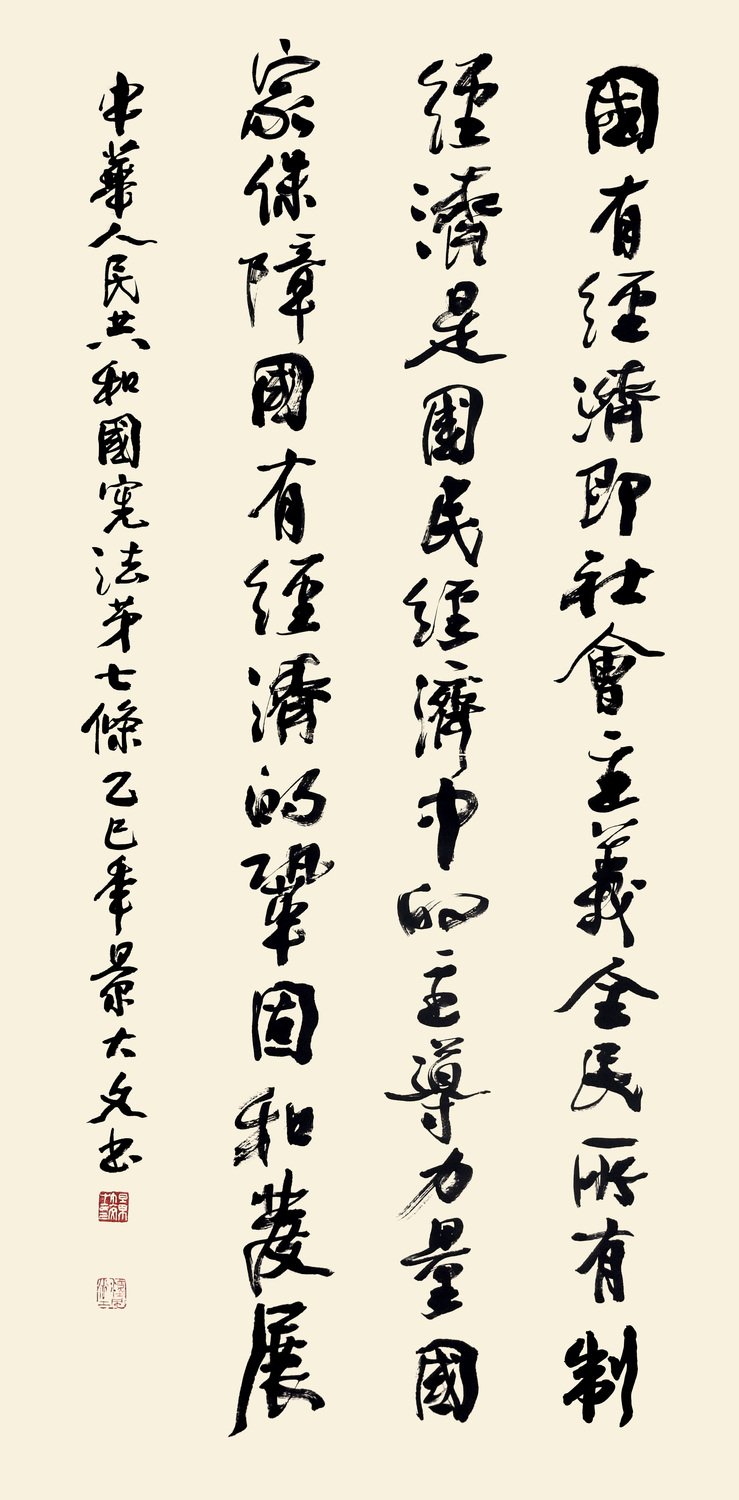 國有經濟即社會主義全民所有制
經濟是國民經濟中的主導力量國
家保障國有經濟的鞏固和發展
中華人民共和國憲法第七條乙巳年景大文书